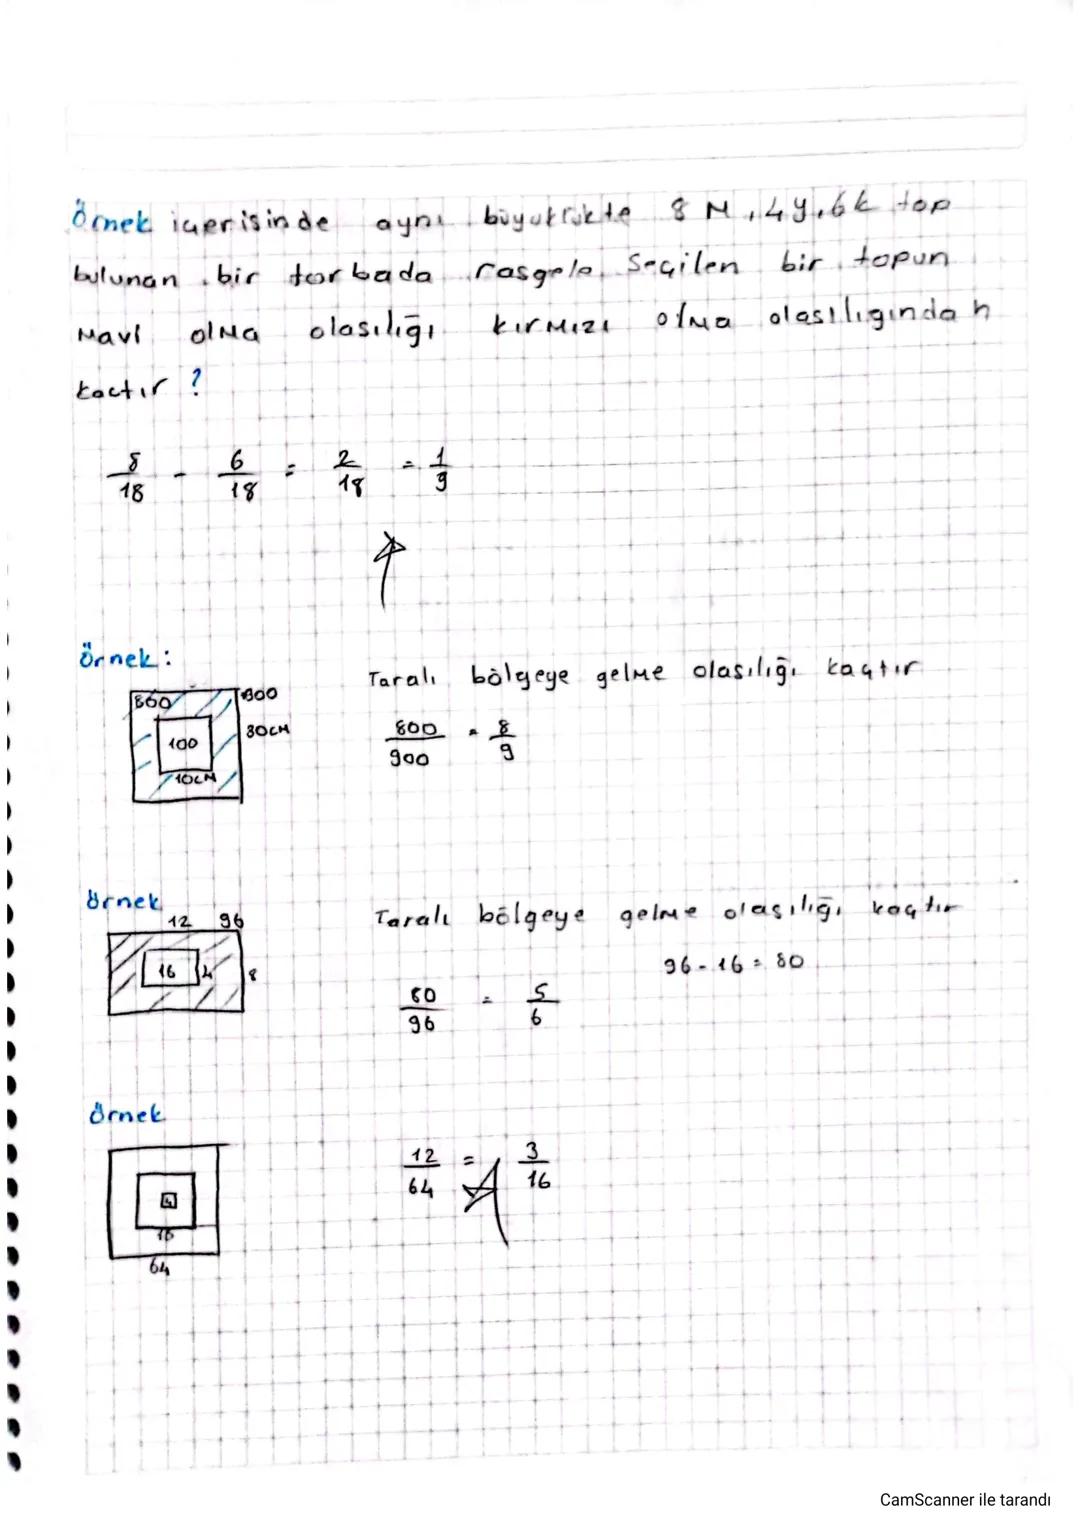 Örnek içerisinde aynı büyüklükte 8 M, 4y, 6k top
bulunan bir torbada rasgele seçilen bir topun
Mavi olMa olasılığı kırMızı olMa olasılığından
kaçtır ?
8/18 - 6/18 = 2/18 = 1/9
Örnek:
Taralı bölgeye gelMe olasılığı kaçtır
800 900
30cM
100
10cM
800/900 = 8/9
Örnek
12 96
Taralı bölgeye gelMe olasılığı kaçtır
16 4 8
96 - 16 = 80
80/96 = 5/6
Örnek
12/64 = 3/16
4
16
64
CamScanner ile tarandı